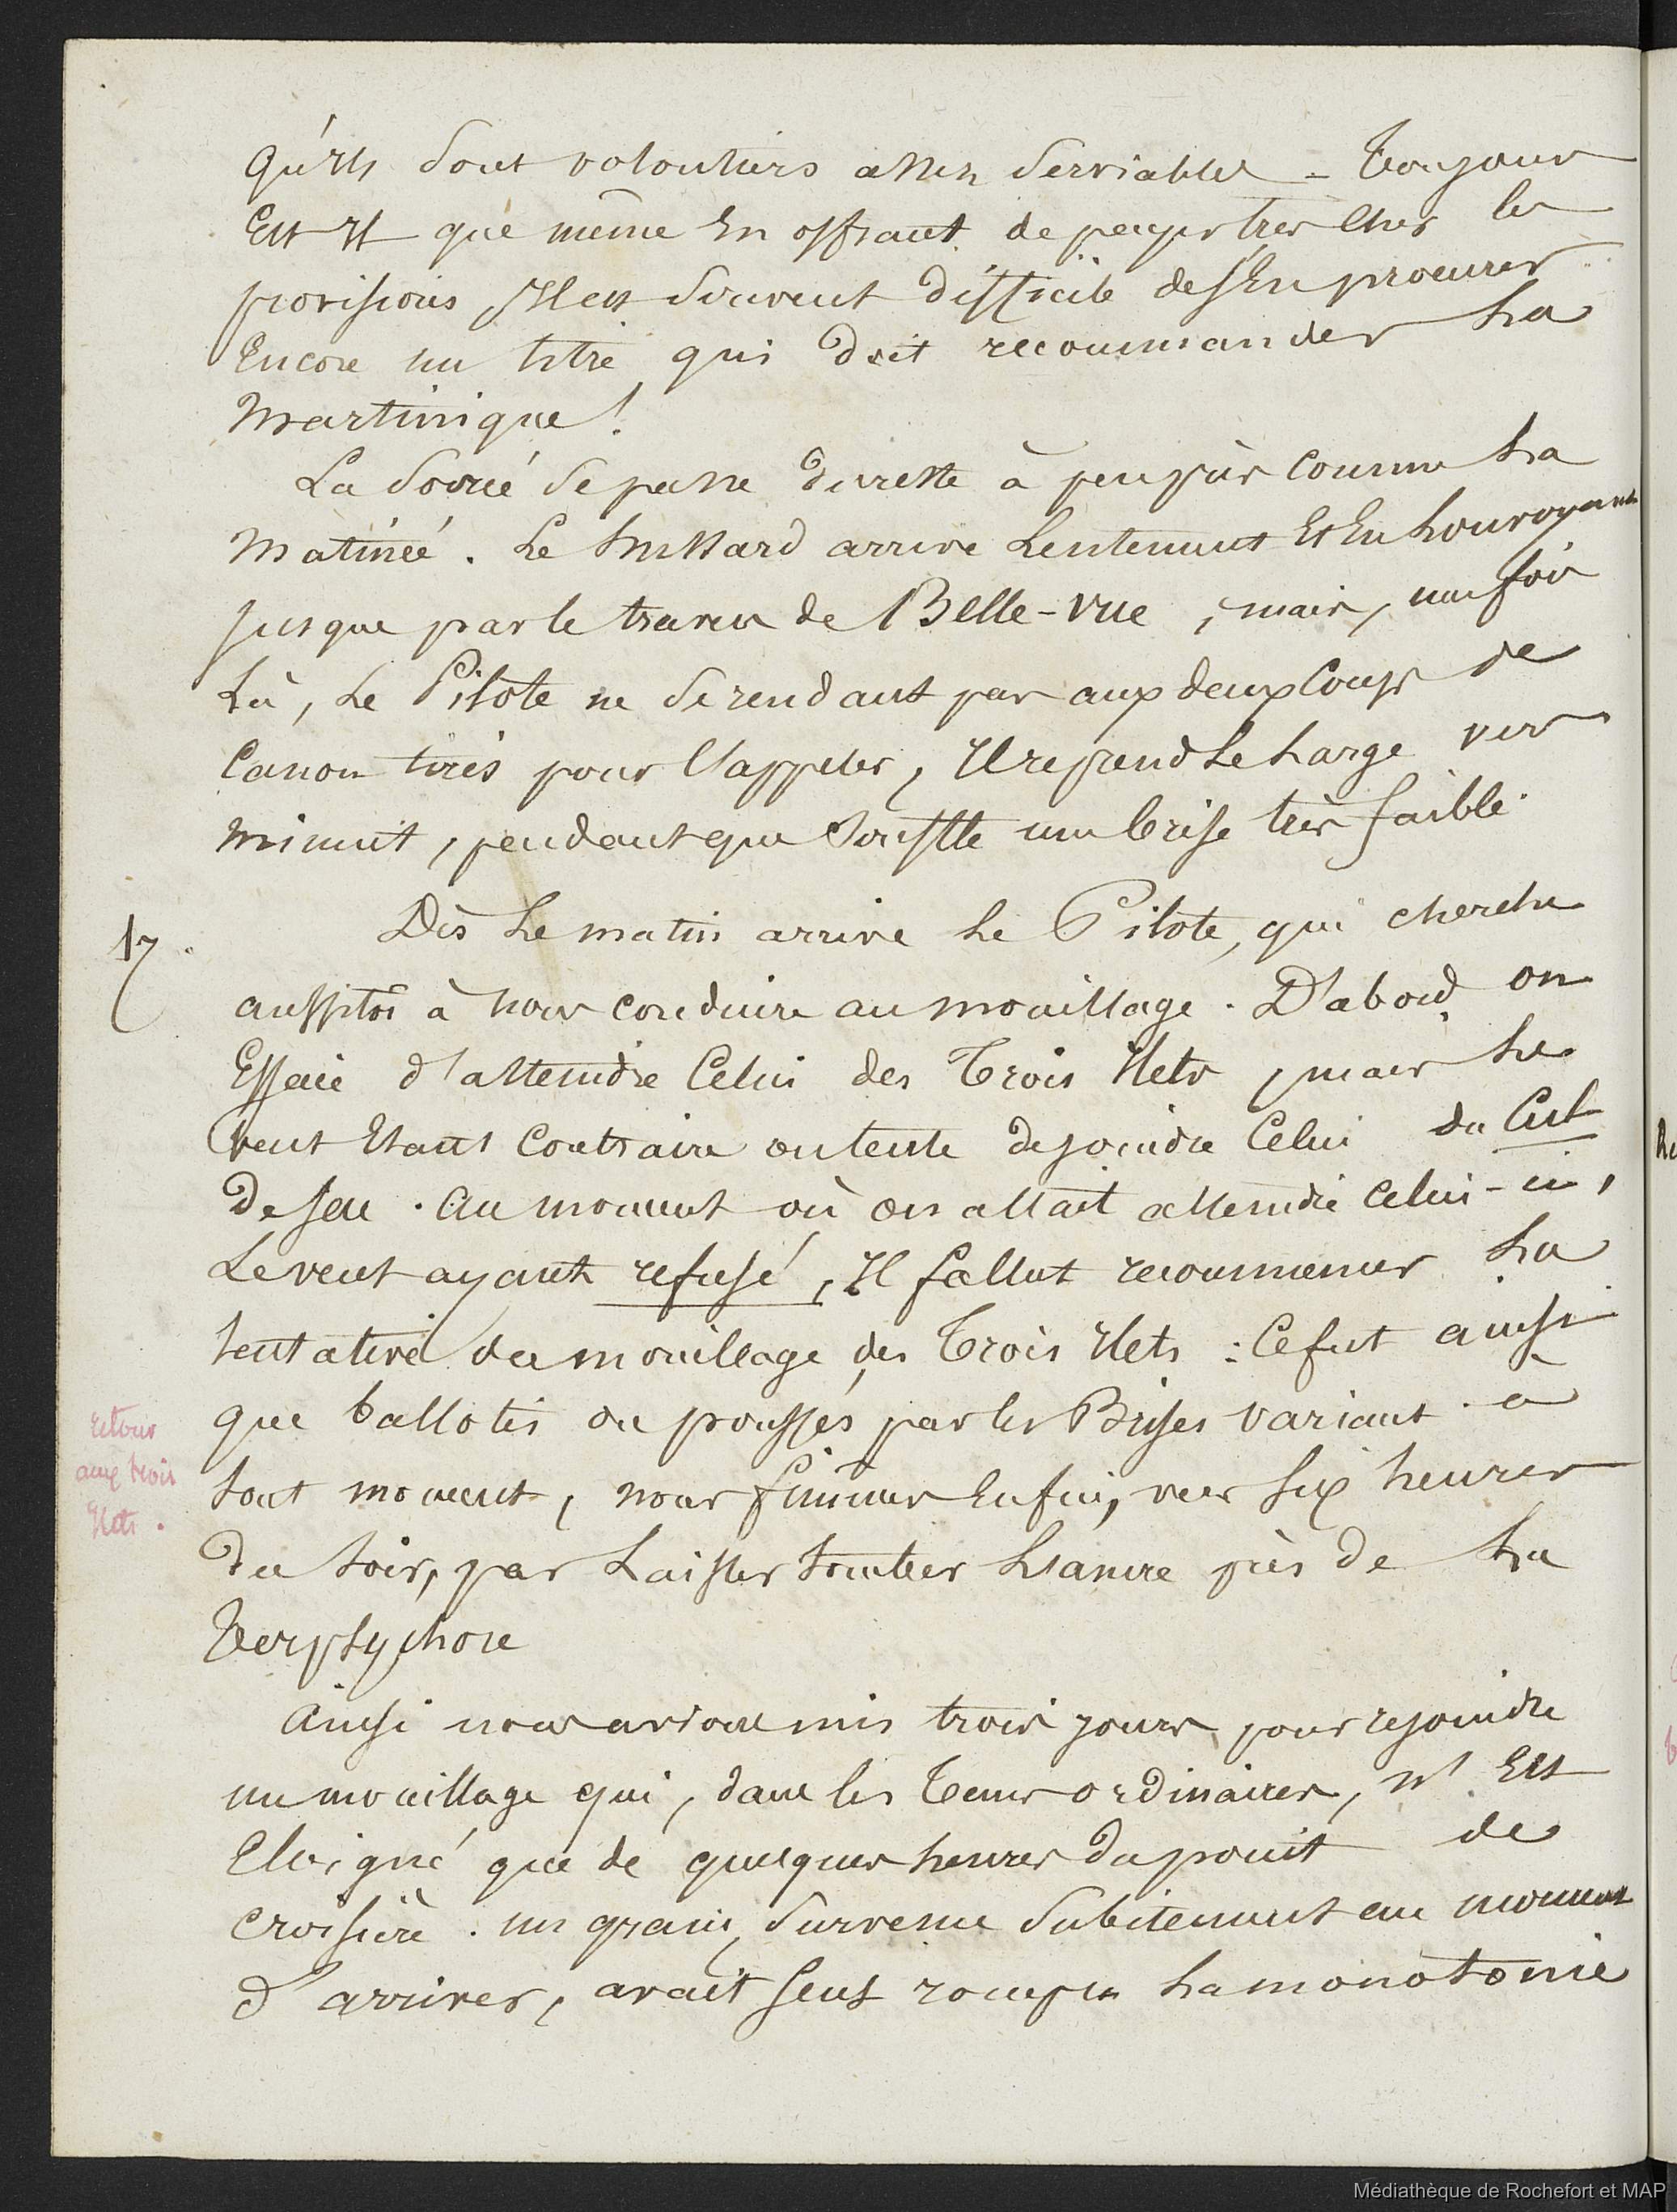 qu'ils sont volontiers assez serviables - Toujours
Est Il que même En offrant de payer très cher les
provisions, Il est souvent difficile de s'En procurer
Encore un titre qui doit recommander La
Martinique!
La soirée se passe du reste à peu près comme La
Matinée. Le hussard arrive Lentement Et En Louvoyant
jusque par le travers de Belle-vue, mais, une fois
Là, Le Pilote ne se rendant pas aux deux coups de
Canon tirés pour L'appeler, Il reprend Le Large vers
minuit, pendant que souffle une brise très faible.
17.
Dès Le matin arrive Le Pilote, qui cherche
aussitôt à nous conduire au mouillage. D'abord on
Essaie d'atteindre Celui des Trois Ilets, mais Le
vent Etant Contraire on tente de joindre Celui du Cul
De sac. Au moment où on allait atteindre celui-ci,
Le vent ayant refusé, Il fallut recommencer La
tentative du mouillage des Trois Ilets : Ce fut ainsi
que ballotés ou poussés par les Brises variant a
tout moment, nous finîmes Enfin, vers six heures
du soir, par Laisser tomber L'ancre près de La
Terpsychore
retour
aux trois
Ilets.
Ainsi nous avions mis trois jours pour rejoindre
un mouillage qui, dans les Tems ordinaires, n'Est
Eloigné que de quelques heures du point de
croisière. un grain, survenu subitement au moment
d'arriver, avait seul rompu La monotonie
Médiathèque de Rochefort et MAP